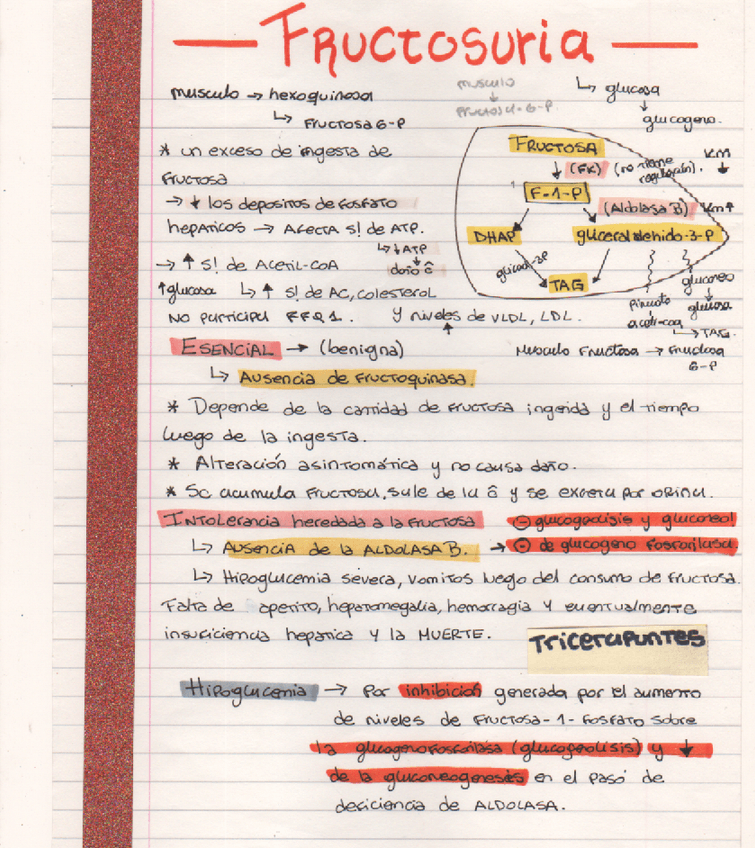 Fructosuria
musculo → hexoquinasa
↳ Fructosa 6-P
musculo
↓
Fructosa-6-P
↳ glucosa
↓
glucogeno.
* un exceso de ingesta de
Fructosa
→ ↓ los depositos de fosfato
hepaticos → Afecta S! de ATP.
↳ ↓ ATP
↓
daño ĉ
→ ↑ S! de Acetil-CoA
↑ glucosa ↳ ↑ S! de AC, colesterol
No participa FFQ1. y niveles de VLDL, LDL.
↑
FRUCTOSA
↓ (FK) (no tiene regulación). Km ↓
F-1-P
(Aldolasa B) Km ↑
DHAP gliceraldehido-3-P
glicerol-3P
TAG
Piruvato
↓
acetil-coa
↳ TAG.
gluconeo
↓
glucosa
Musculo Fructosa → Fructosa
6-P
Esencial → (benigna)
↳ Ausencia de Fructoquinasa.
* Depende de la cantidad de Fructosa ingerida y el tiempo
luego de la ingesta.
* Alteración asintomática y no causa daño.
* Se acumula Fructosa, sale de la ĉ y se excreta por orina.
Intolerancia heredada a la fructosa ⊖ glucogenolisis y gluconeo!
↳ Ausencia de la ALDOLASA B. → ⊖ de glucogeno fosforilasa.
↳ Hipoglucemia severa, vomitos luego del consumo de fructosa.
Falta de apetito, hepatomegalia, hemorragia y eventualmente
insuficiencia hepatica y la MUERTE.
Tricerapuntes
Hipoglucemia → Por inhibición generada por el aumento
de niveles de Fructosa-1-Fosfato sobre
la glucogenofosforilasa (glucogenolisis) y ↓
de la gluconeogenesis en el paso de
deficiencia de ALDOLASA.